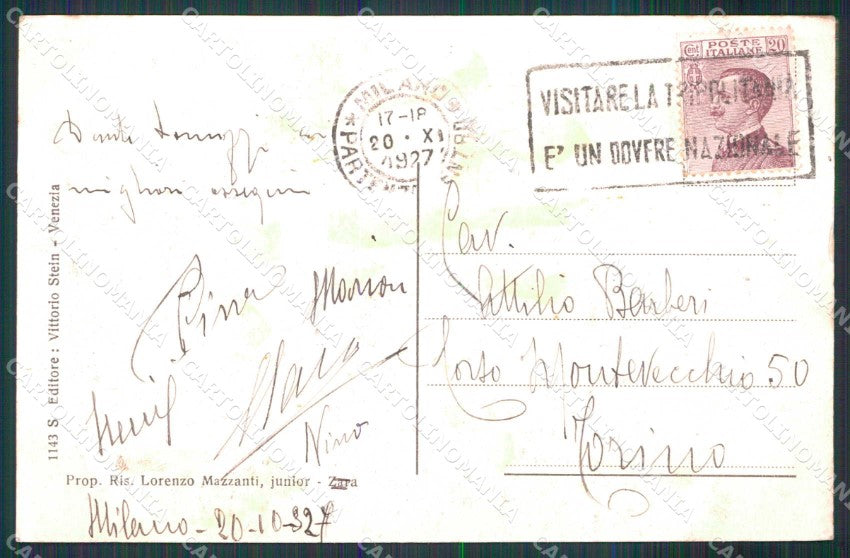 Cent POSTE 20
ITALIANE
VISITARE LA TRIPOLITANIA
E' UN DOVERE NAZIONALE
MILANO
17-18
20 · XI
1927
migliori ossequi
Pina
Nino
Cav.
Attilio Barberi
Corso Montevecchio 50
Torino
1143 S Editore: Vittorio Stein - Venezia
Prop. Ris. Lorenzo Mazzanti, junior - Zara
Milano - 20-10-927
CARTOLINOMANIA